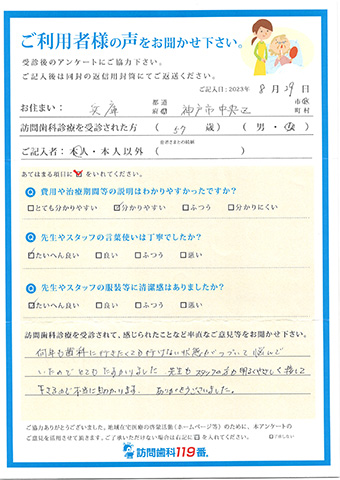 ご利用者様の声をお聞かせ下さい。
受診後のアンケートにご協力下さい。
ご記入後は同封の返信用封筒にてご返送ください。
ご記入日：2023年 8月 29日
お住まい： 兵庫 都道府県 神戸市中央区 市区町村
訪問歯科診療を受診された方 （ 57 歳） （ 男・女 ）
ご記入者：本人・本人以外（ ）
あてはまる項目に☑をいれてください。
Q 費用や治療期間等の説明はわかりやすかったですか？
□とても分かりやすい ☑分かりやすい □ふつう □分かりにくい
Q 先生やスタッフの言葉使いは丁寧でしたか？
☑たいへん良い □良い □ふつう □悪い
Q 先生やスタッフの服装等に清潔感はありましたか？
☑たいへん良い □良い □ふつう □悪い
訪問歯科診療を受診されて、感じられたことなど率直なご意見等をお聞かせ下さい。
何年も歯科に行きたくても行けない状態がつづいて悩んで
いたのでとてもたすかりました 先生も スタッフの方も明るくやさしく接して
下さるので本当に助かります。 ありがとうございました。
ご協力ありがとうございました。地域在宅医療の啓蒙活動（ホームページ等）のために、本アンケートの
ご意見を活用させて頂きます。ご了承いただけない場合は右記に☑を入れてください。 □了承しない
訪問歯科119番。